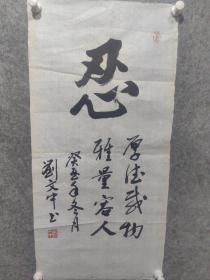 忍
厚德载物
雅量容人
癸丑年冬月
刘文宇书